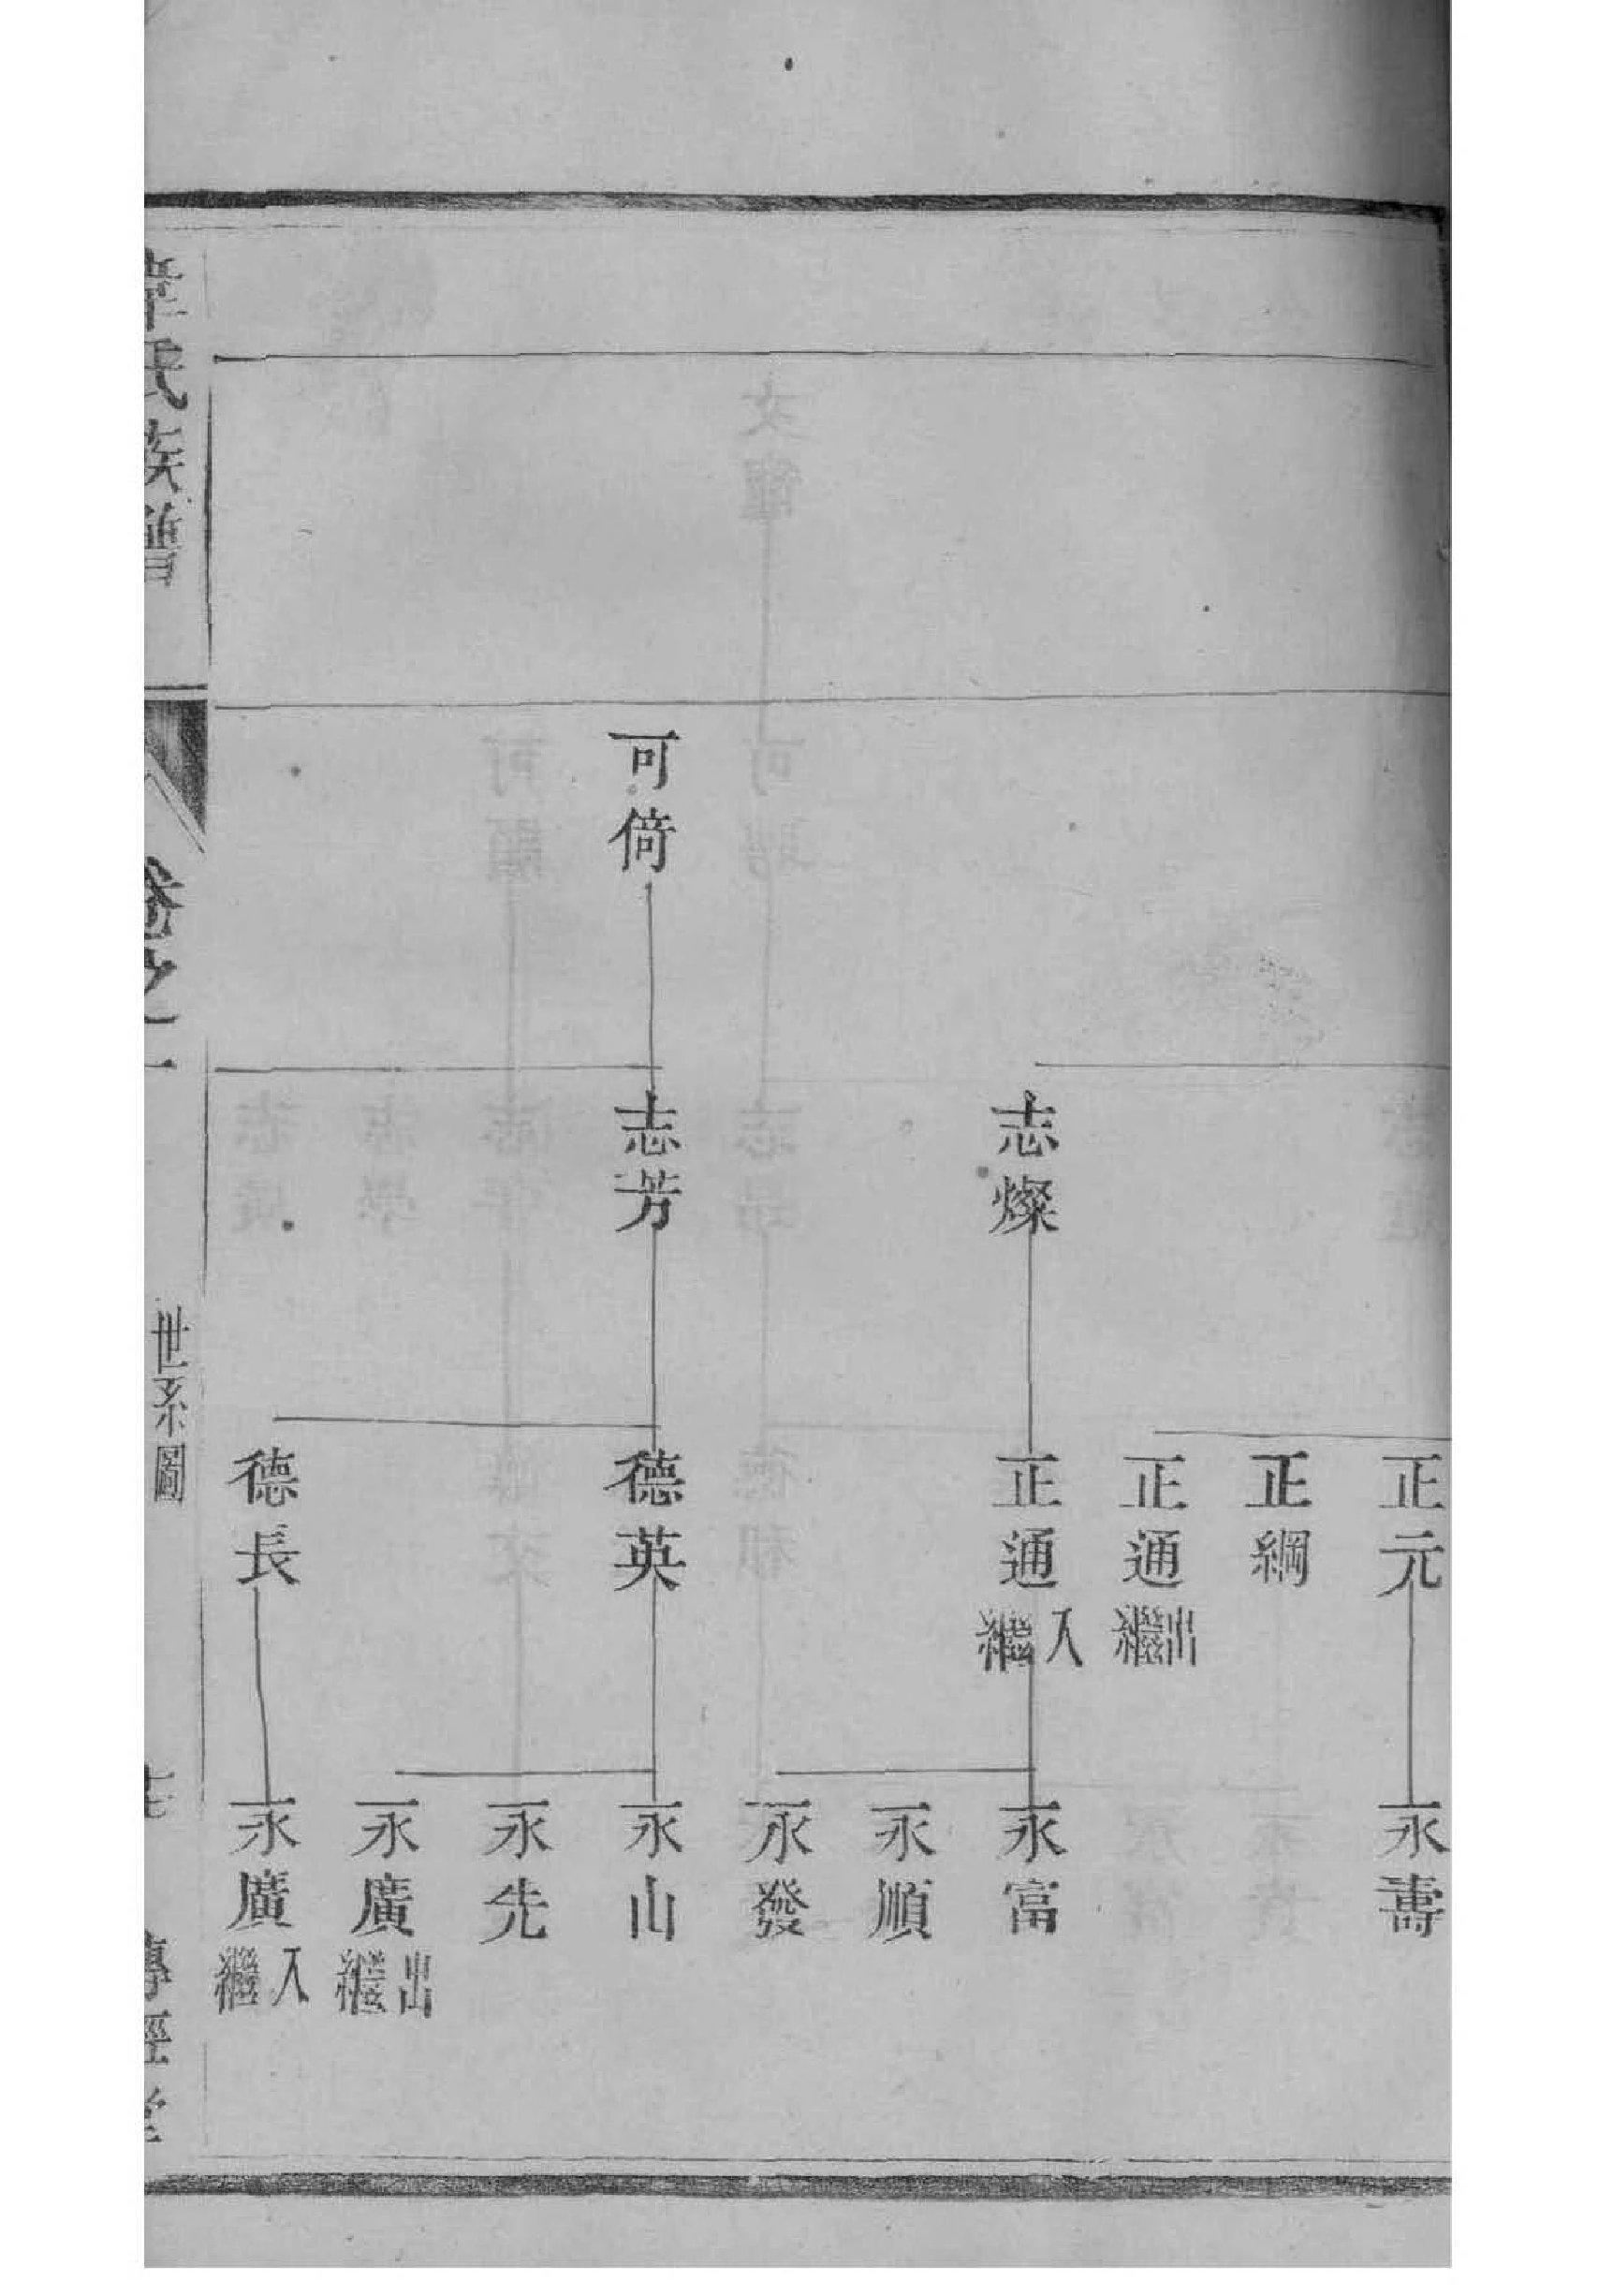 正元
永壽
正綱
正通
出繼
志燦
正通
入繼
永富
永順
永發
可倚
志芳
德英
永山
永先
永廣
出繼
德長
永廣
入繼
韋氏族譜
卷之一
世系圖
七
傳經堂